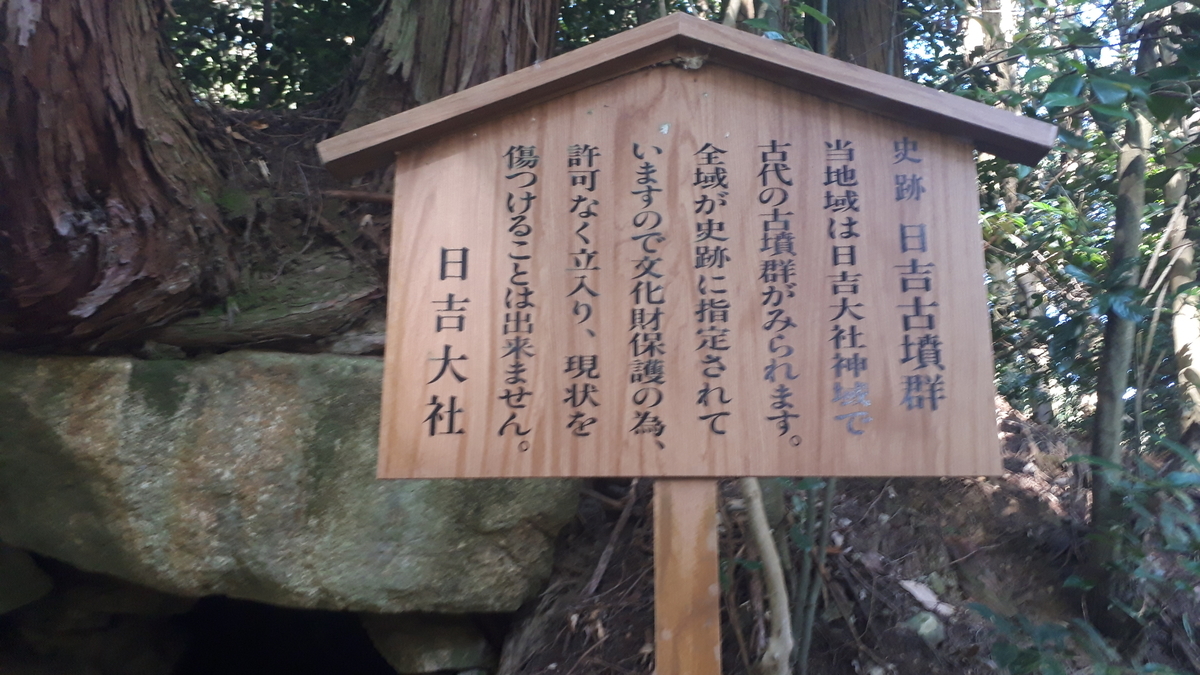 史跡 日吉古墳群
当地域は日吉大社神域で
古代の古墳群がみられます。
全域が史跡に指定されて
いますので文化財保護の為、
許可なく立入り、現状を
傷つけることは出来ません。
日吉大社